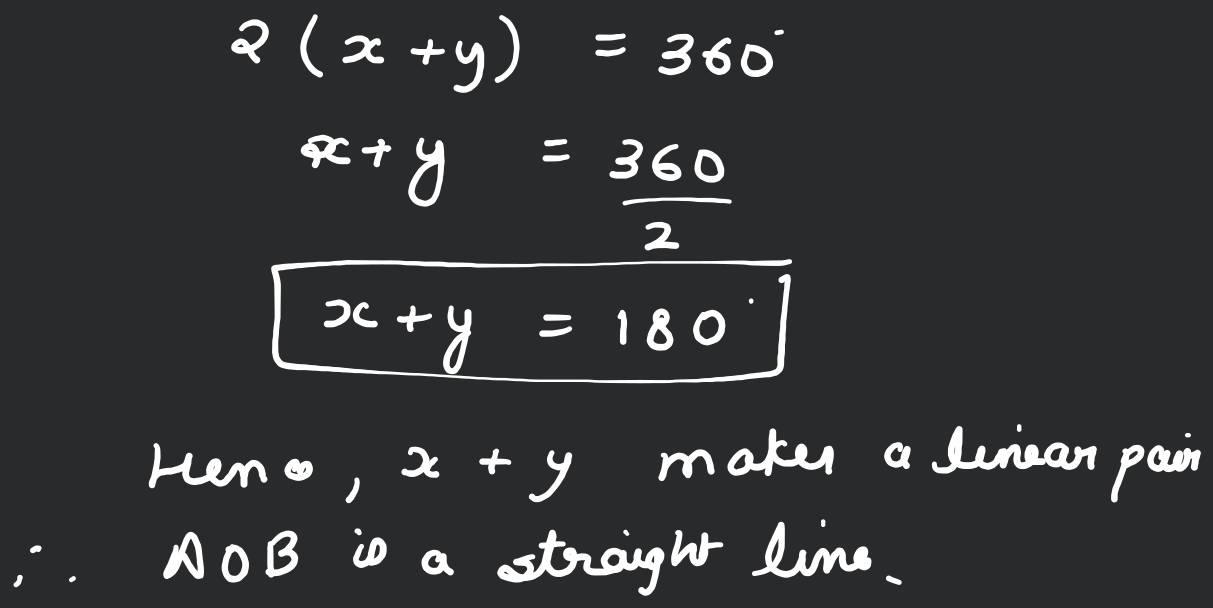 2 (x + y) = 360°
x + y = 360/2
x + y = 180°
Hence, x + y makes a linear pair
∴ AOB is a straight line.